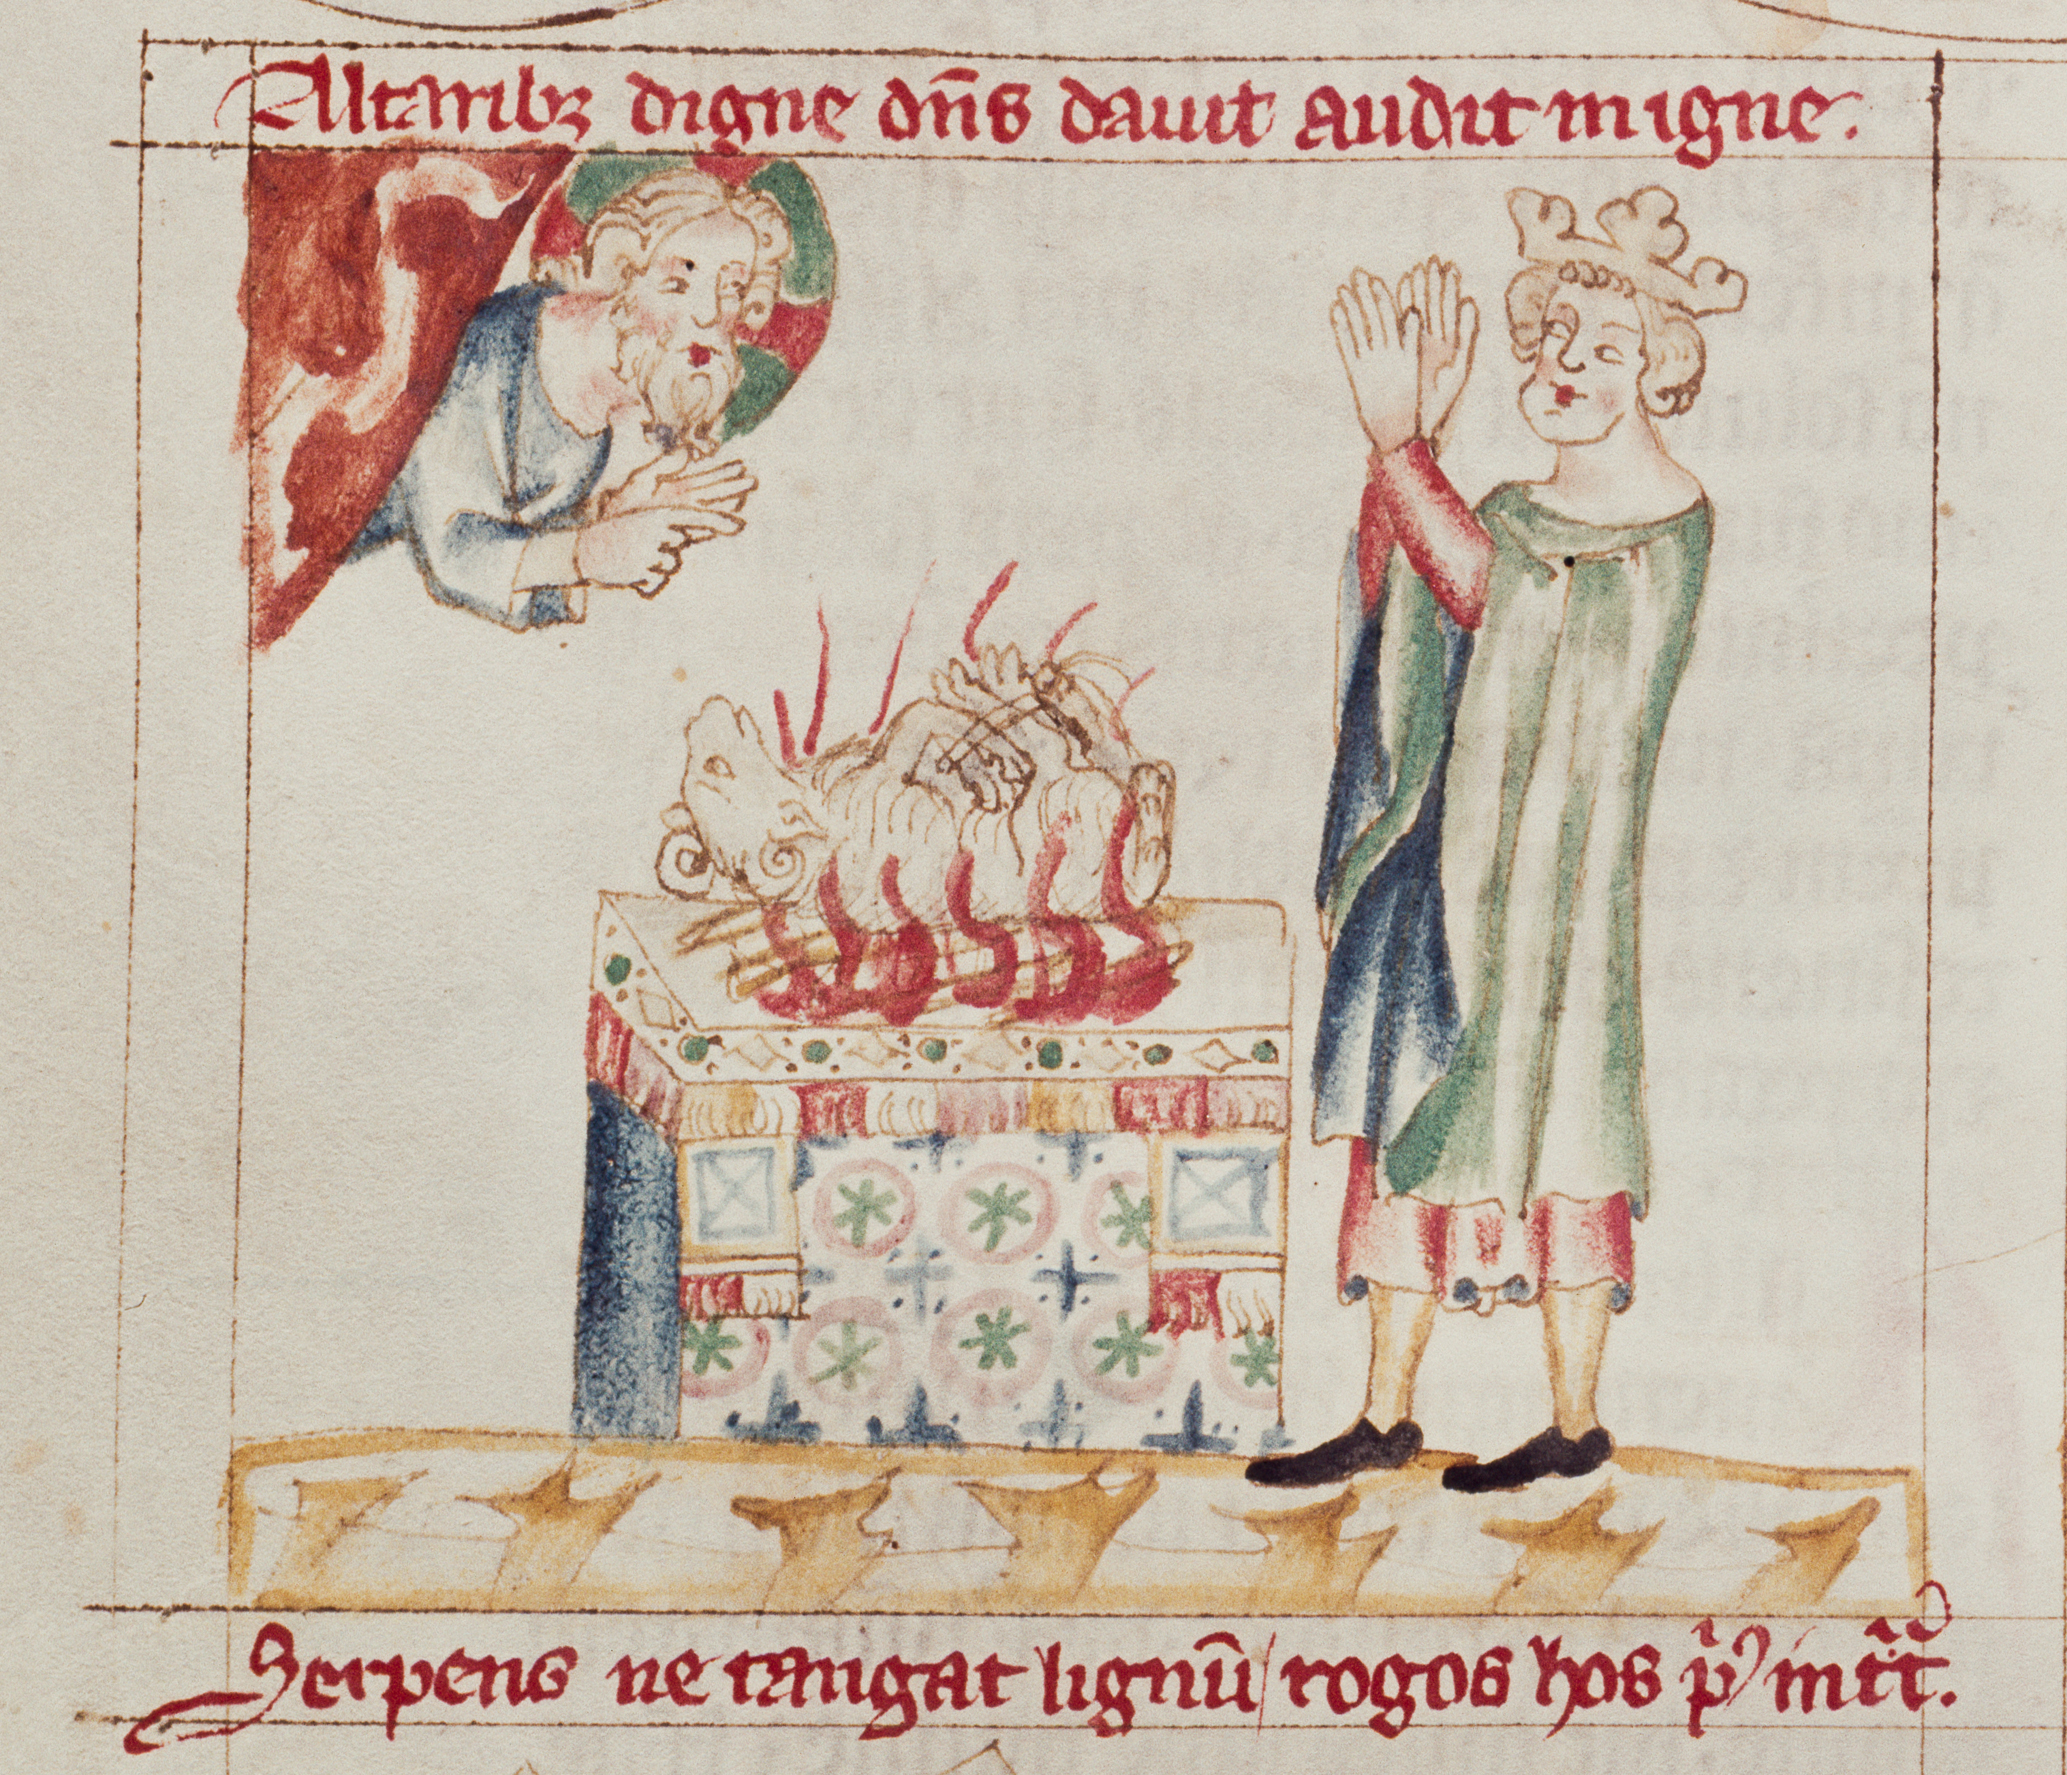 Altaribꝫ digne dn̄s dauit audit in igne.
Serpens ne tangat lignū rogos hos